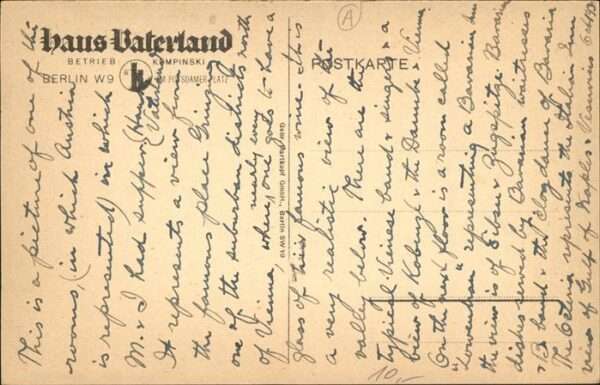 Haus Vaterland
BETRIEB KEMPINSKI
BERLIN W9 AM POTSDAMER PLATZ
POSTKARTE
A
This is a picture of one of the
rooms, (in which Austria
is represented) in which
M. & I had supper. (Haus
Vaterland)
It represents a view from
the famous place Grinzing
one of the suburban districts north
of Vienna, where nearly every
one goes to have a
glass of new famous wine. This is
a very realistic view of the
valley below. There are the
typical Vienese band & singers & a
view of Kobenzl & the Danube & Vienna
On the next floor is a room called
"Lowenbrau" representing a Bavarian Inn
the view is of Eibsee & Zugspitze. Bavarian
dishes served by Bavarian waitresses
& band & the clog dance of Bavaria
The Osteria represents the Italian Inn
view of Gulf of Naples & Vesuvius
10,-